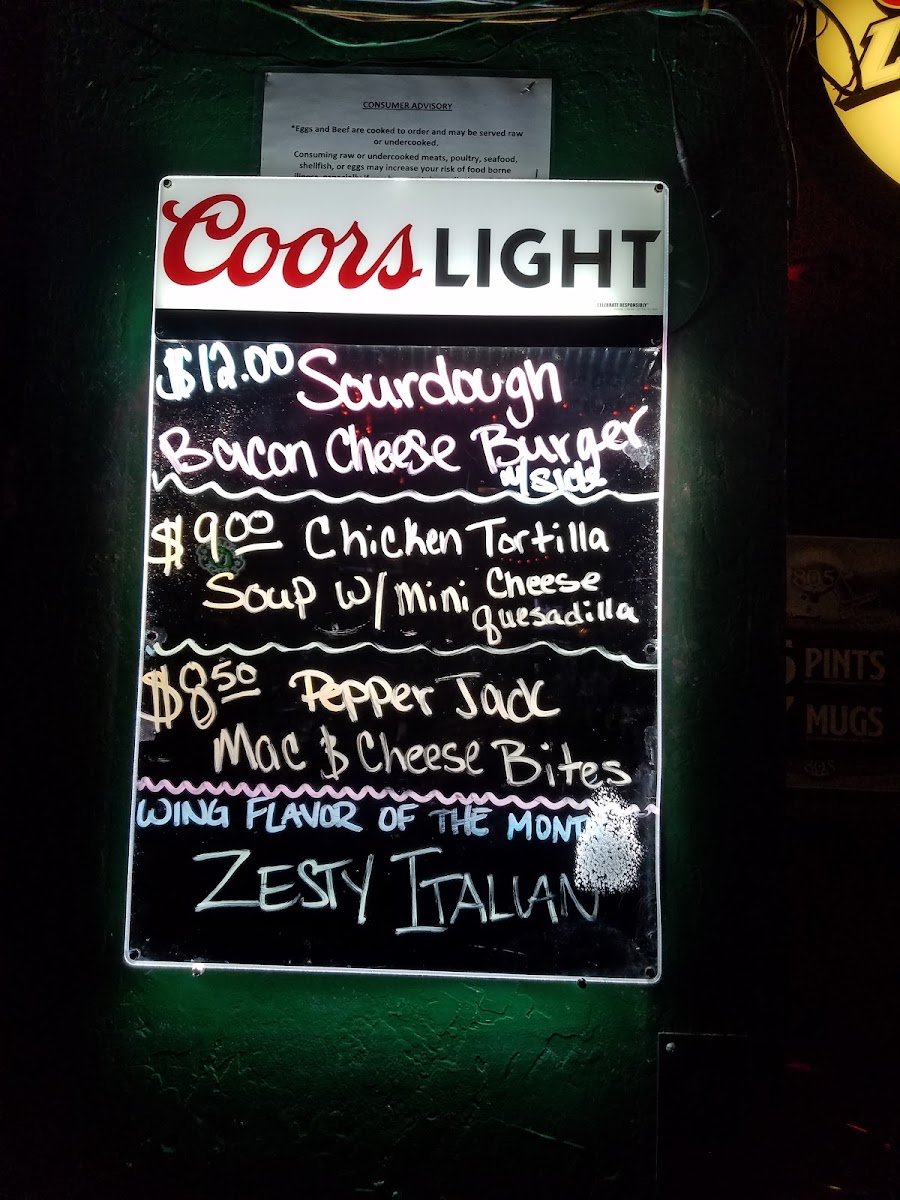 CONSUMER ADVISORY
*Eggs and Beef are cooked to order and may be served raw
or undercooked.
Consuming raw or undercooked meats, poultry, seafood,
shellfish, or eggs may increase your risk of food borne
Coors LIGHT
CELEBRATE RESPONSIBLY
$12.00 Sourdough
Bacon Cheese Burger
w/ side
$9.00 Chicken Tortilla
Soup w/ mini Cheese
quesadilla
$8.50 Pepper Jack
Mac $ Cheese Bites
WING FLAVOR OF THE MONTH
ZESTY ITALIAN
805
PINTS
MUGS
805